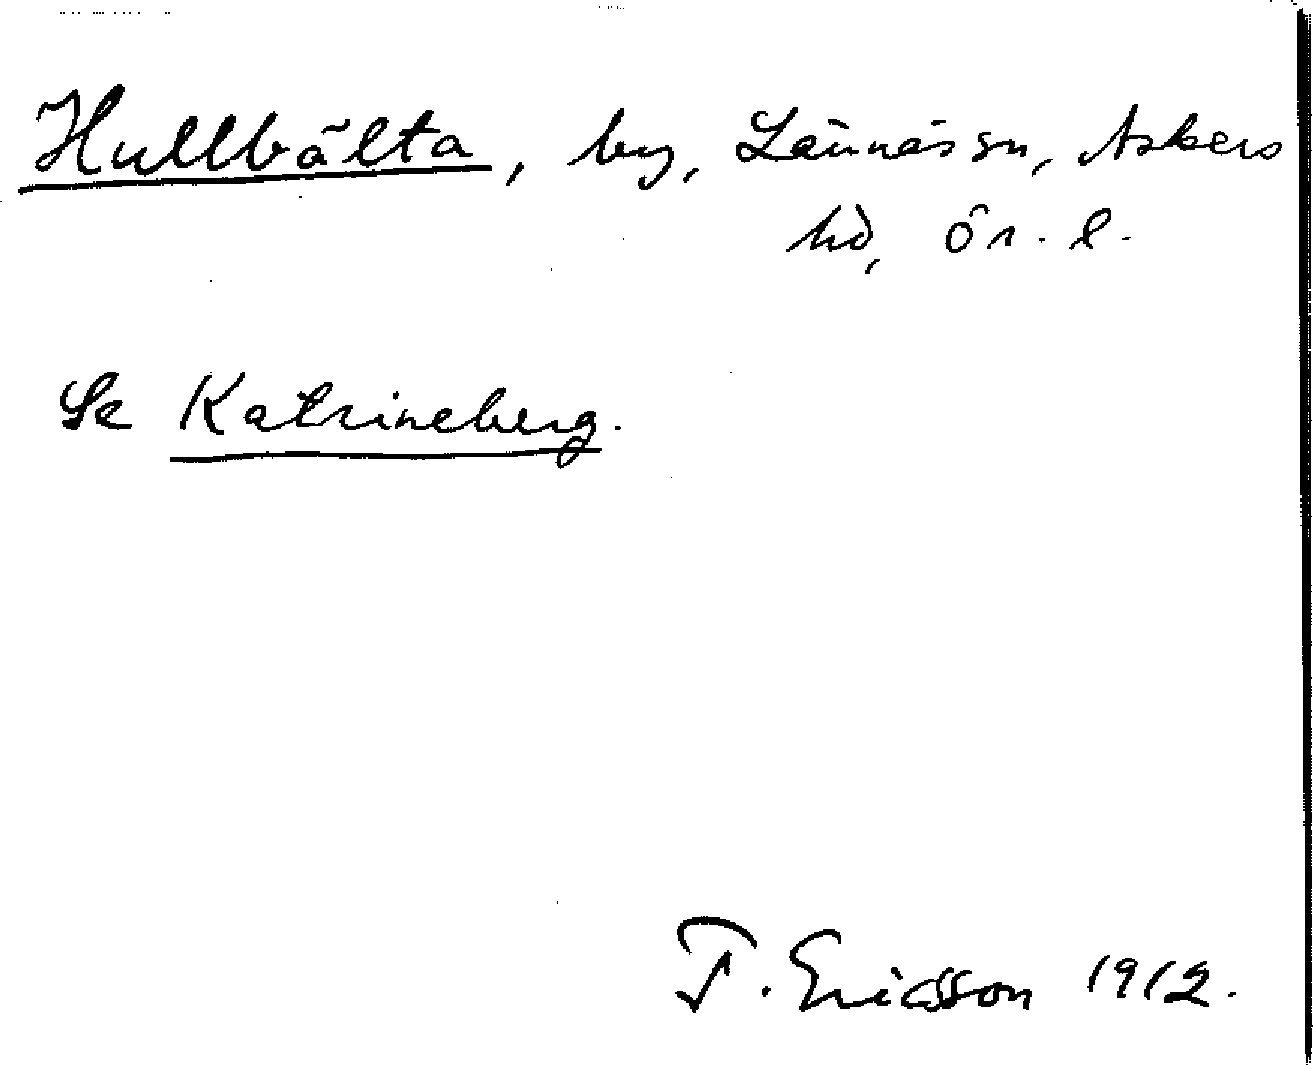 Hullbälta, by, Lännäs sn, Askers
hd, Ör. l.
Se Katrineberg.
T. Ericsson 1912.